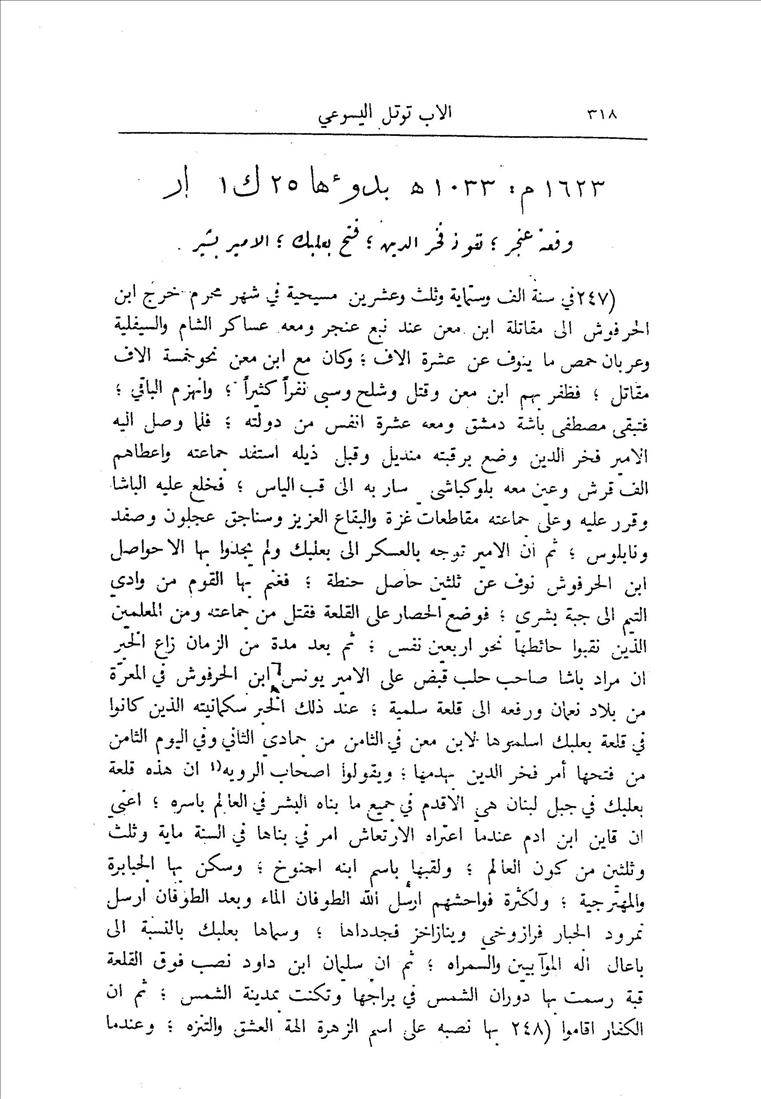 الاب توتل اليسوعي ٣١٨
١٦٢٣ م : ١٠٣٣ هـ بدوءها ٢٥ ك ١ إر
وقعة عنجر ؛ نفوذ فخر الدين ؛ فتح بعلبك ؛ الامير بشير .
(٢٤٧ في سنة الف وستماية وثلث وعشرين مسيحية في شهر محرم خرج ابن
الحرفوش الى مقاتلة ابن معن عند نبع عنجر ومعه عساكر الشام والسيفلية
وعربان حمص ما ينوف عن عشرة الاف ؛ وكان مع ابن معن نحو خمسة الاف
مقاتل ؛ فظفر بهم ابن معن وقتل وشلح وسبى نفراً كثيراً ؛ وانهزم الباقي ؛
فتبقى مصطفى باشة دمشق ومعه عشرة انفس من دولته ؛ فلما وصل اليه
الامير فخر الدين وضع برقبته منديل وقبل ذيله استفد جماعته واعطاهم
الف قرش وعين معه بلوكباشي سار به الى قب الياس ؛ فخلع عليه الباشا
وقرر عليه وعلى جماعته مقاطعات غزة والبقاع العزيز وسناجق عجلون وصفد
ونابلوس ؛ ثم ان الامير توجه بالعسكر الى بعلبك ولم يجدوا بها الا حواصل
ابن الحرفوش نوف عن ثلثين حاصل حنطة ؛ فغنم بها القوم من وادي
التيم الى جبة بشري ؛ فوضع الحصار على القلعة فقتل من جماعته ومن المعلمين
الذين نقبوا حائطها نحو اربعين نفس ؛ ثم بعد مدة من الزمان زاع الخبر
ان مراد باشا صاحب حلب قبض على الامير يونس ابن الحرفوش في المعرّة
من بلاد نعمان ورفعه الى قلعة سلمية ؛ عند ذلك الخبر سكمانيته الذين كانوا
في قلعة بعلبك اسلموها لابن معن في الثامن من جمادي الثاني وفي اليوم الثامن
من فتحها أمر فخر الدين بهدمها ؛ ويقولوا اصحاب الرويه(١ ان هذه قلعة
بعلبك في جبل لبنان هي الاقدم في جميع ما بناه البشر في العالم باسره ؛ اعني
ان قاين ابن ادم عندما اعتراه الارتعاش امر في بناها في السنة ماية وثلث
وثلثين من كون العالم ؛ ولقبها باسم ابنه احنوخ ؛ وسكن بها الجبابرة
والمهترجية ؛ ولكثرة فواحشهم ارسل الله الطوفان الماء وبعد الطوفان ارسل
نمرود الجبار فرازوخي وينازاخز فجدداها ؛ وسماها بعلبك بالنسبة الى
باعال اله الموآبيين والسمراه ؛ ثم ان سليمان ابن داود نصب فوق القلعة
قبة رسمت بها دوران الشمس في براجها وتكنت بمدينة الشمس ؛ ثم ان
الكفار اقاموا (٢٤٨ بها نصبه على اسم الزهرة الهة العشق والتنزه ؛ وعندما